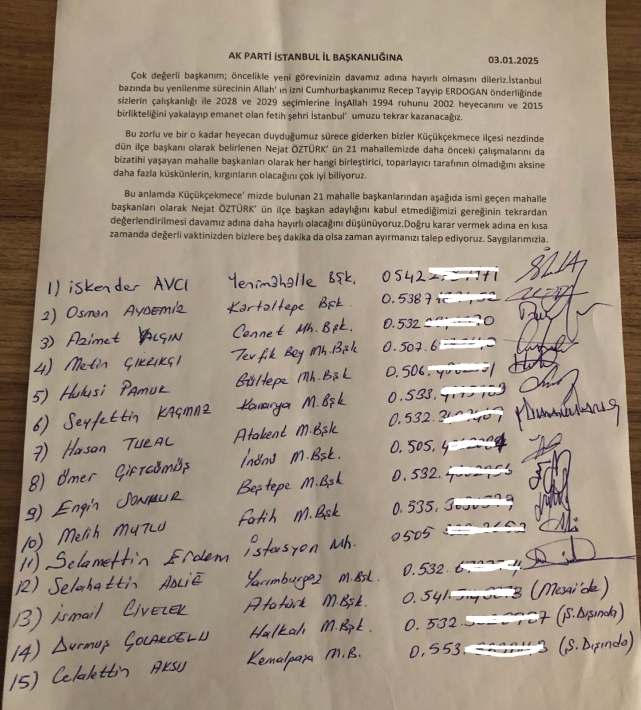 AK PARTİ İSTANBUL İL BAŞKANLIĞINA 03.01.2025
Çok değerli başkanım; öncelikle yeni görevinizin davamız adına hayırlı olmasını dileriz.İstanbul
bazında bu yenilenme sürecinin Allah' ın izni Cumhurbaşkanımız Recep Tayyip ERDOGAN önderliğinde
sizlerin çalışkanlığı ile 2028 ve 2029 seçimlerine İnşAllah 1994 ruhunu 2002 heyecanını ve 2015
birlikteliğini yakalayıp emanet olan fetih şehri İstanbul' umuzu tekrar kazanacağız.
Bu zorlu ve bir o kadar heyecan duyduğumuz sürece giderken bizler Küçükçekmece ilçesi nezdinde
dün ilçe başkanı olarak belirlenen Nejat ÖZTÜRK' ün 21 mahallemizde daha önceki çalışmalarını da
bizatihi yaşayan mahalle başkanları olarak her hangi birleştirici, toparlayıcı tarafının olmadığını aksine
daha fazla küskünlerin, kırgınların olacağını çok iyi biliyoruz.
Bu anlamda Küçükçekmece' mizde bulunan 21 mahalle başkanlarından aşağıda ismi geçen mahalle
başkanları olarak Nejat ÖZTÜRK' ün ilçe başkan adaylığını kabul etmediğimizi gereğinin tekrardan
değerlendirilmesi davamız adına daha hayırlı olacağını düşünüyoruz.Doğru karar vermek adına en kısa
zamanda değerli vaktinizden bizlere beş dakika da olsa zaman ayırmanızı talep ediyoruz. Saygılarımızla.
1) iskender AVCI Yenimahalle Bşk. 0542
2) Osman AYDEMİR Kartaltepe Bşk. 0.5387
3) Azimet YALGIN Cennet Mh. Bşk. 0.532
4) Metin ÇIKRIKÇI Tevfik Bey Mh.Bşk 0.507.6
5) Hulusi PAMUK Gültepe Mh.Bşk 0.506.
6) Seyfettin KAÇMAZ Kanarya M.Bşk 0.533.
7) Hasan TURAL Atakent M.Bşk 0.532.
8) Ömer ÇİFTGÜMÜŞ İnönü M.Bşk. 0.505.
9) Engin Beştepe M.Bşk 0.532.
10) Melih MUTLU Fatih M.Bşk 0.535.
11) Selamettin Erdem istasyon Mh. 0505
12) Selahattin Yarımburgaz M.Bşk. 0.532.
13) ismail CİVELEK Atatürk M.Bşk. 0.541 (Mesai'de)
14) Durmuş ÇOLAKOĞLU Halkalı M.Bşk. 0.532. (Ş.Dışında)
15) Celalettin AKSU Kemalpaşa M.B. 0.553. (Ş.Dışında)